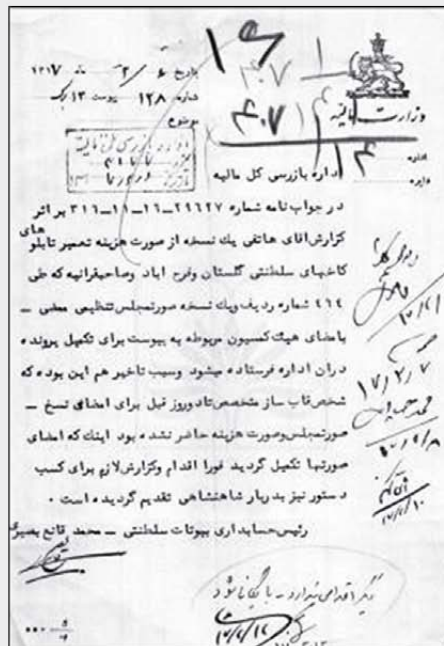 وزارت مالیه
تاریخ ۶ / ۲ ماه ۱۳۱۷
شماره ۱۲۸ پیوست ۱۳ برگ
موضوع
اداره
دایره
اداره بازرسی کل مالیه
در جواب نامه شماره ۲۹۶۲۷-۱۶-۱۱-۳۱۶ بر اثر
گزارش آقای هاتفی یک نسخه از صورت هزینه تعمیر تابلو های
کاخهای سلطنتی گلستان و فرح آباد و صاحبقرانیه که طی
۴۶۴ شماره ردیف و یک نسخه صورتمجلس تنظیمی ممضی ــ
بامضای هیئت کمسیون مربوطه به پیوست برای تکمیل پرونده
در ان اداره فرستاده میشود وسبب تاخیر هم این بوده که
شخص قاب ساز متخصص تا دو روز قبل برای امضای نسخ ــ
صورتمجلس وصورت هزینه حاضر نشده بود اینک که امضای
صورتها تکمیل گردید فورا اقدام وگزارش لازم برای کسب
دستور نیز بدربار شاهنشاهی تقدیم گردیده است ۰
رئیس حسابداری بیوتات سلطنتی ــ محمد قانع بصیری
دیگر اقدامی ندارد - بایگانی شود